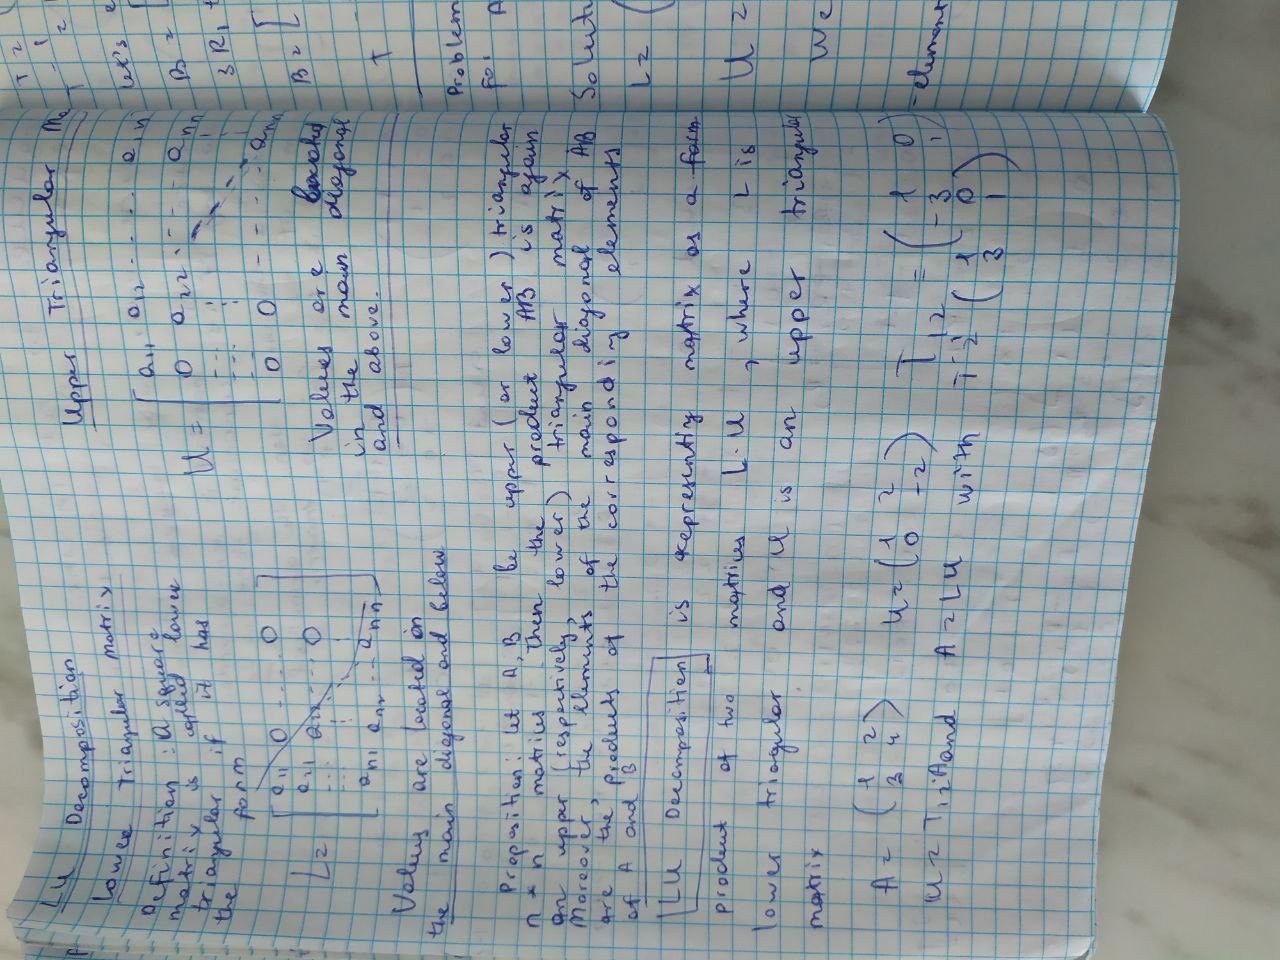 LU Decomposition
Lower Triangular matrix
Definition: a square
matrix is called lower
triangular if it has
the form
L = [ a11 0 .... 0
a21 a22 .... 0
... ⋮
an1 an2 ... ann ]
Values are located on
the main diagonal and below
Upper Triangular Ma
U = [ a11 a12 ..... a1n
0 a22 ... a2n
0 0 ---- ann
Values are located
in the main diagonal
and above.
Proposition: let A, B be upper (or lower) triangular
n × n matrices. Then the product AB is again
an upper (respectively, lower) triangular matrix
Moreover, the elements of the main diagonal of AB
are the products of the corresponding elements
of A and B
LU Decomposition is representing matrix as a form
product of two matrices L·U, where L is
lower triangular and U is an upper triangular
matrix
A = ( 1 2
3 4 )
U = ( 1 2
0 -2 )
T12 = ( 1 0
-3 1 )
U = T12 A and A = LU with T-1 12 ( 1 0
3 1 )
Let's
B =
3R1
B = [
Problem
for A
Solut
L =
U =
we
-element